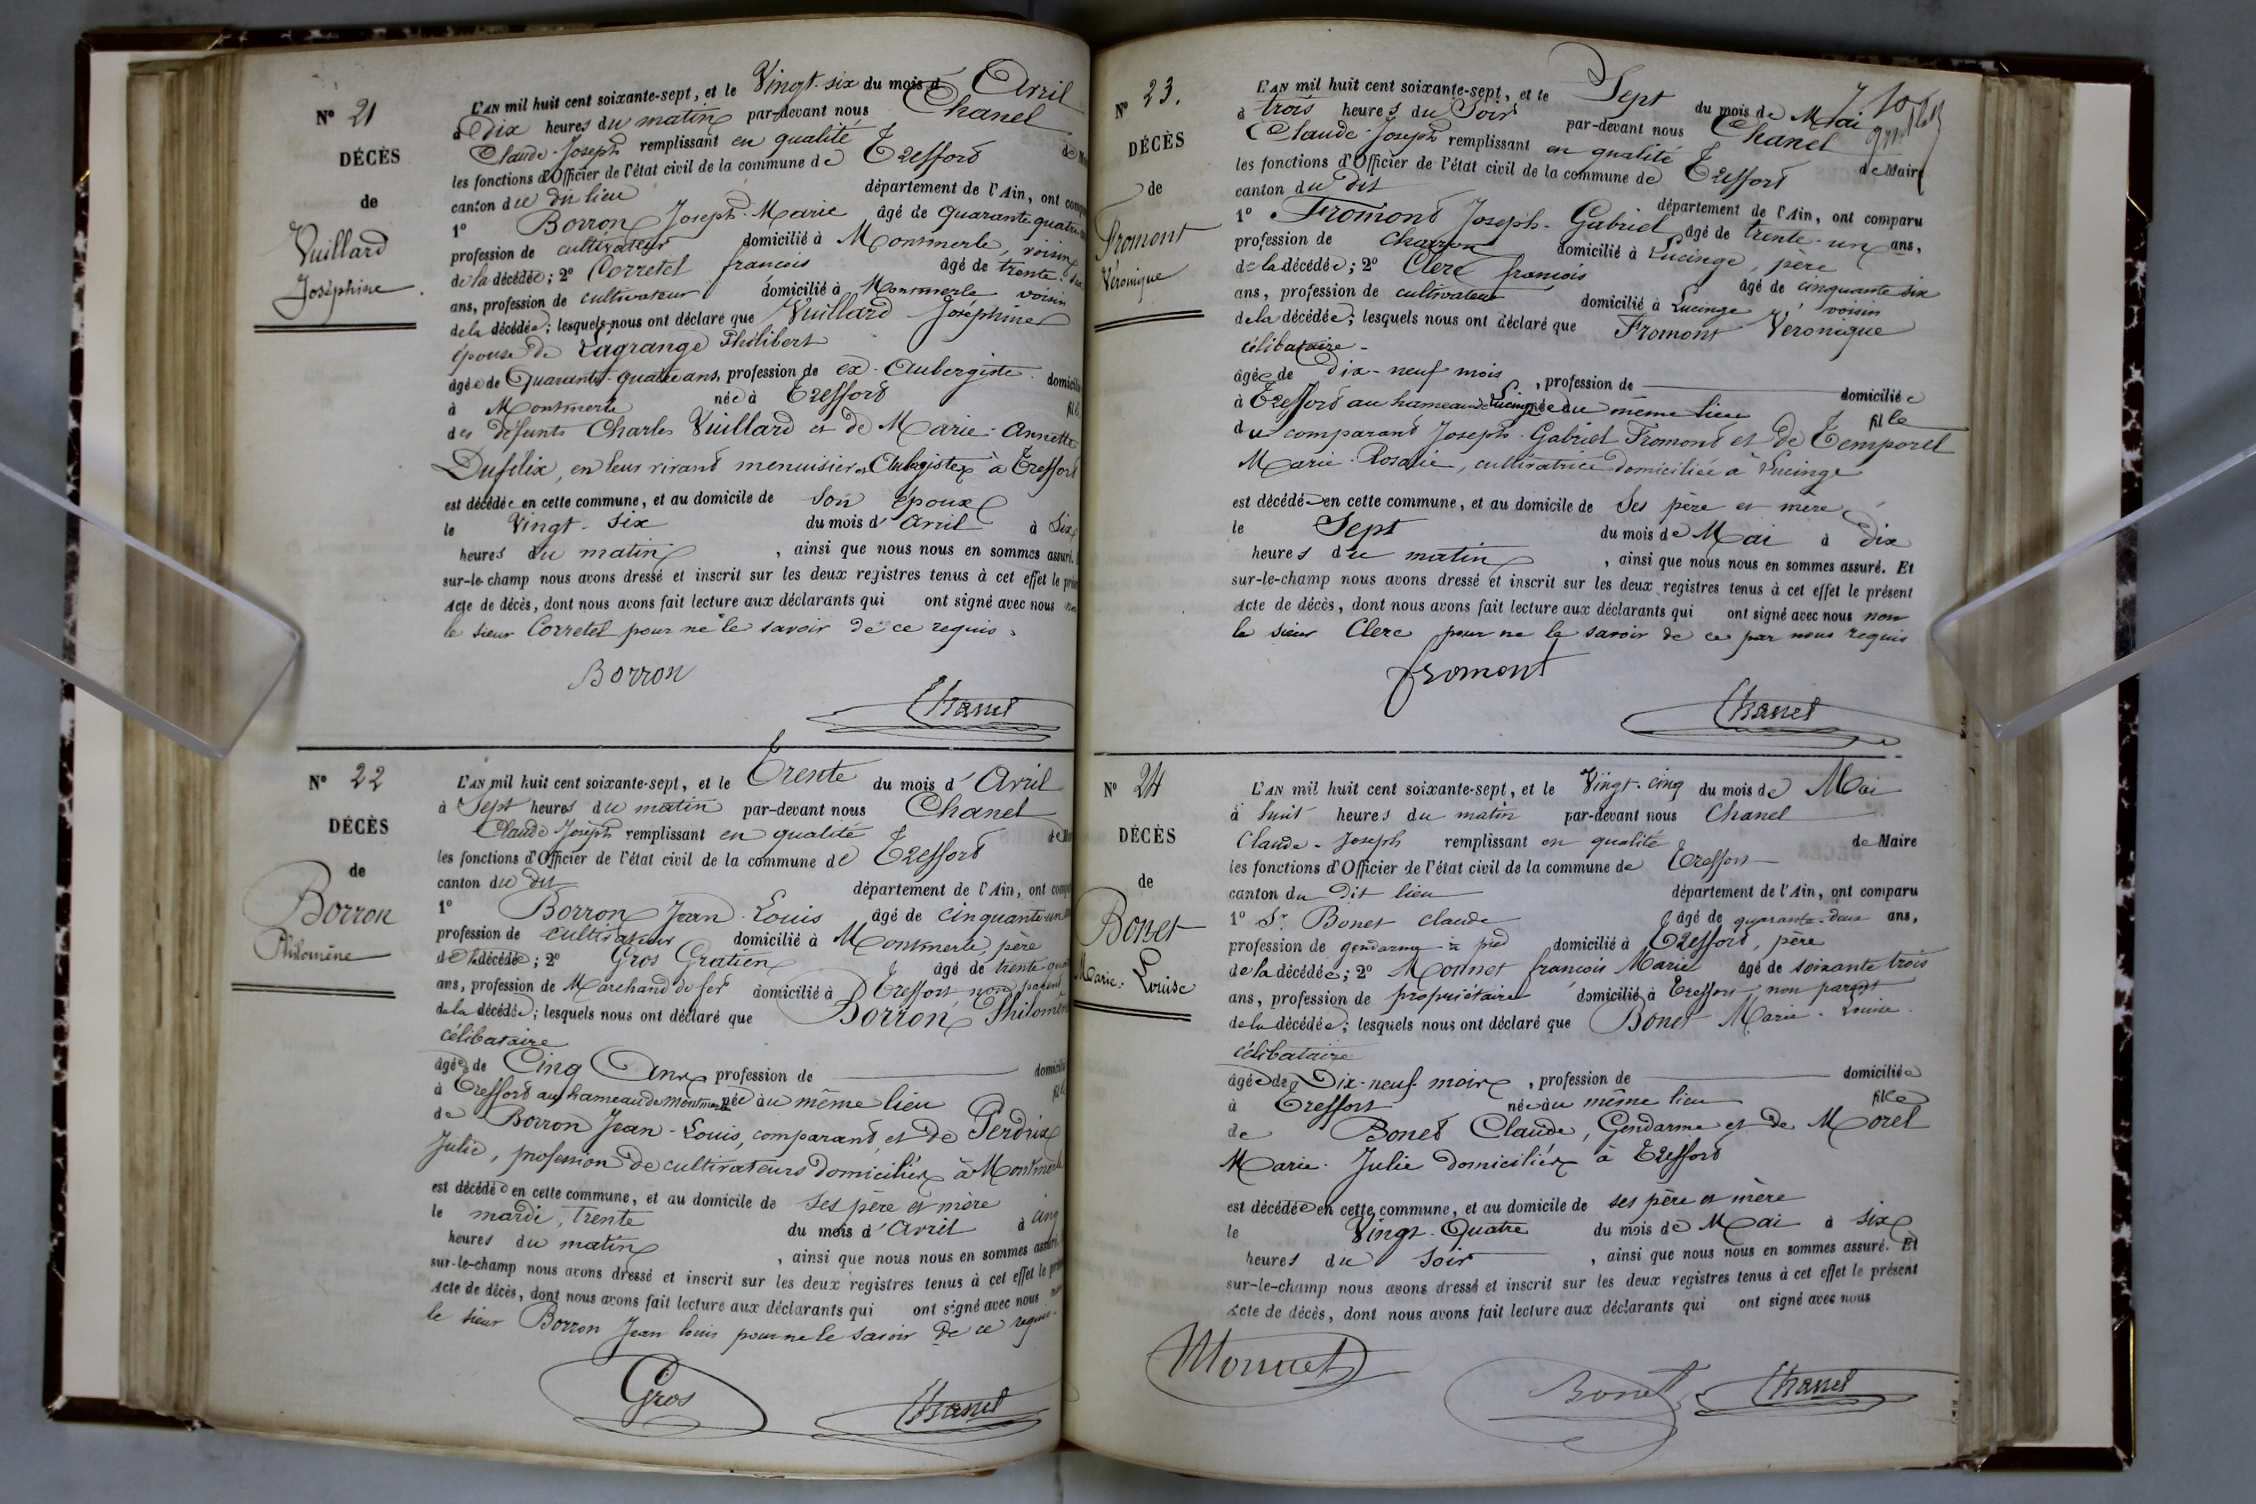 N° 21
DÉCÈS
de
Vuillard
Joséphine
L'AN mil huit cent soixante-sept, et le Vingt-six du mois d' Avril
à Dix heures du matin par-devant nous Chanel
Claude-Joseph remplissant en qualité de
les fonctions d'Officier de l'état civil de la commune de Treffort
canton du du lieu département de l'Ain, ont
1° Borron Joseph-Marie âgé de quarante quatre
profession de cultivateur domicilié à Montmerle, voisin
de la décédée; 2° Corretel francois âgé de trente
ans, profession de cultivateur domicilié à Montmerle voisin
de la décédée; lesquels nous ont déclaré que Vuillard Joséphine
épouse de Lagrange Philibert
âgée de Quarante-quatre ans, profession de ex-Aubergiste
à Montmerle née à Treffort
des défunts Charles Vuillard et de Marie-Annette
Dufelix, en leur vivant menuisier et Aubergistes à Treffort
est décédée en cette commune, et au domicile de Son époux
le Vingt-six du mois d'Avril à Six
heures du matin, ainsi que nous nous en sommes assuré.
sur-le-champ nous avons dressé et inscrit sur les deux registres tenus à cet effet le
Acte de décès, dont nous avons fait lecture aux déclarants qui ont signé avec nous non
le sieur Corretel pour ne le savoir de ce requis.
Borron
Chanel
N° 22
DÉCÈS
de
Borron
Philomène
L'AN mil huit cent soixante-sept, et le Trente du mois d'Avril
à Sept heures du matin par-devant nous Chanel
Claude Joseph remplissant en qualité
les fonctions d'Officier de l'état civil de la commune de Treffort
canton du dit département de l'Ain, ont
1° Borron Jean-Louis âgé de cinquante-un
profession de cultivateur domicilié à Montmerle, père
de la décédée; 2° Gros Gratien âgé de trente
ans, profession de Marchand de fer domicilié à Treffort non parent
de la décédée; lesquels nous ont déclaré que Borron Philomène
célibataire
âgée de Cinq Ans profession de
à Treffort au hameau de montmerle née au même lieu
de Borron Jean-Louis, comparant, et de Perdrix
Julie, profession de cultivateurs domiciliés à Montmerle
est décédée en cette commune, et au domicile de ses père et mère
le mardi, trente du mois d'Avril à cinq
heures du matin, ainsi que nous nous en sommes assuré.
sur-le-champ nous avons dressé et inscrit sur les deux registres tenus à cet effet le
Acte de décès, dont nous avons fait lecture aux déclarants qui ont signé avec nous
le sieur Borron Jean louis pour ne le savoir de ce requis.
Gros
Chanel
N° 23.
DÉCÈS
de
Fromont
Véronique
L'AN mil huit cent soixante-sept, et le Sept du mois de Mai
à trois heures du Soir par-devant nous Chanel
Claude-Joseph remplissant en qualité de Maire
les fonctions d'Officier de l'état civil de la commune de Treffort
canton du dit département de l'Ain, ont comparu
1° Fromont Joseph-Gabriel âgé de trente-un ans,
profession de charron domicilié à Lucinge, père
de la décédée; 2° Clerc francois âgé de cinquante six
ans, profession de cultivateur domicilié à Lucinge, voisin
de la décédée; lesquels nous ont déclaré que Fromont Véronique
célibataire
âgée de dix-neuf mois, profession de domiciliée
à Treffort au hameau de Lucinge née au même lieu fille
du comparant Joseph-Gabriel Fromont et de Temporel
Marie-Rosalie, cultivatrice domiciliée à Lucinge
est décédée en cette commune, et au domicile de Ses père et mère
le Sept du mois de Mai à dix
heures du matin, ainsi que nous nous en sommes assuré. Et
sur-le-champ nous avons dressé et inscrit sur les deux registres tenus à cet effet le présent
Acte de décès, dont nous avons fait lecture aux déclarants qui ont signé avec nous non
le sieur Clerc pour ne le savoir de ce par nous requis
fromont
Chanel
N° 24
DÉCÈS
de
Bonet
Marie-Louise
L'AN mil huit cent soixante-sept, et le Vingt-cinq du mois de Mai
à huit heures du matin par-devant nous Chanel
Claude-Joseph remplissant en qualité de Maire
les fonctions d'Officier de l'état civil de la commune de Treffort
canton du dit lieu département de l'Ain, ont comparu
1° Sr. Bonet Claude âgé de quarante-deux ans,
profession de gendarme à pied domicilié à Treffort, père
de la décédée; 2° Monnet françois Marie âgé de soixante trois
ans, profession de propriétaire domicilié à Treffort non parent
de la décédée; lesquels nous ont déclaré que Bonet Marie-Louise
célibataire
âgée de Dix-neuf mois, profession de domiciliée
à Treffort née au même lieu fille
de Bonet Claude, Gendarme et de Morel
Marie-Julie domiciliés à Treffort
est décédée en cette commune, et au domicile de ses père et mère
le Vingt-Quatre du mois de Mai à six
heures du soir, ainsi que nous nous en sommes assuré. Et
sur-le-champ nous avons dressé et inscrit sur les deux registres tenus à cet effet le présent
Acte de décès, dont nous avons fait lecture aux déclarants qui ont signé avec nous
Monnet
Bonet
Chanel